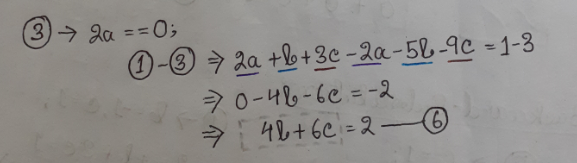 ③ → 2a == 0;
① - ③ ⇒ 2a + b + 3c - 2a - 5b - 9c = 1 - 3
⇒ 0 - 4b - 6c = -2
⇒ 4b + 6c = 2 — ⑥